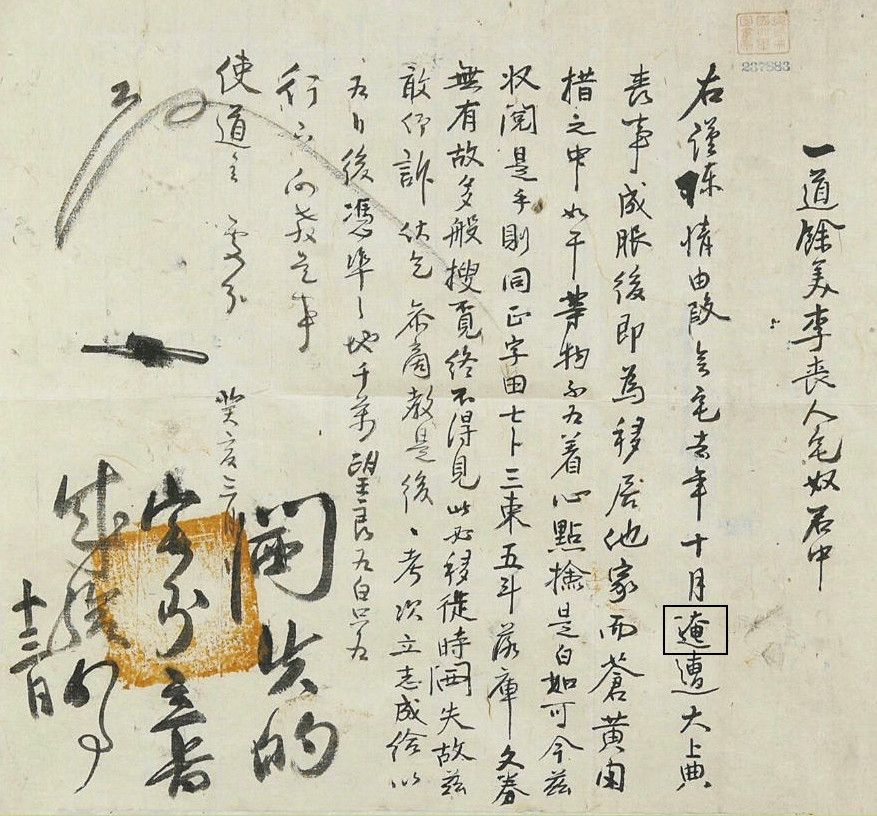 一道餘美李喪人宅奴石中
右謹陳情由段矣宅去年十月遭大上典
喪事成服後卽爲移居他家而蒼黃罔
措之中如干等物不右着心點撿是白如可今玆
收閱是乎則同正字田七卜三束五斗落庫文券
無有故多般搜覓終不得見此必移徙時閪失故玆
敢仰訴伏乞 參商敎是後後考次立志成給以
右日後憑準之地千萬望良白只爲
行下向敎是事
使道主 處分
癸亥三月
閪失的
實是立旨
成給向事
十三日
237583